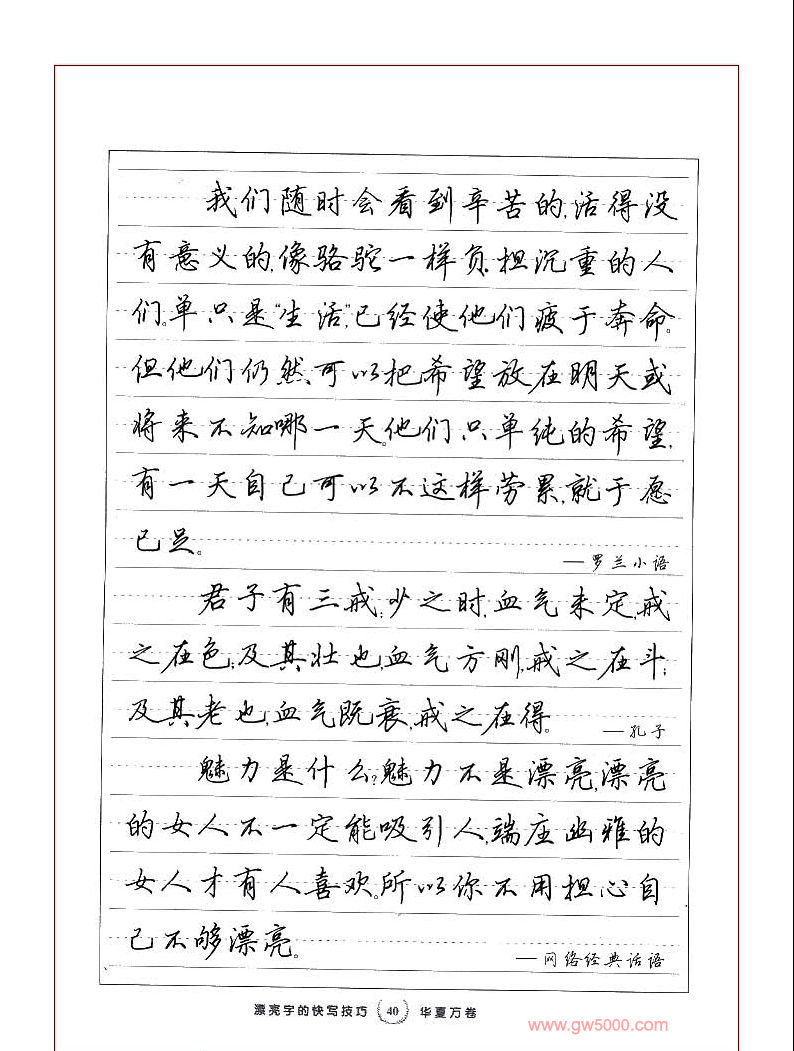 我们随时会看到辛苦的,活得没
有意义的,像骆驼一样负担沉重的人
们。单只是“生活”,已经使他们疲于奔命。
但他们仍然可以把希望放在明天或
将来不知哪一天。他们只单纯的希望,
有一天自己可以不这样劳累,就于愿
已足。
—罗兰小语
君子有三戒:少之时,血气未定,戒
之在色;及其壮也,血气方刚,戒之在斗;
及其老也,血气既衰,戒之在得。
—孔子
魅力是什么?魅力不是漂亮,漂亮
的女人不一定能吸引人,端庄幽雅的
女人才有人喜欢。所以你不用担心自
己不够漂亮。
—网络经典话语
漂亮字的快写技巧 40 华夏万卷
www.gw5000.com